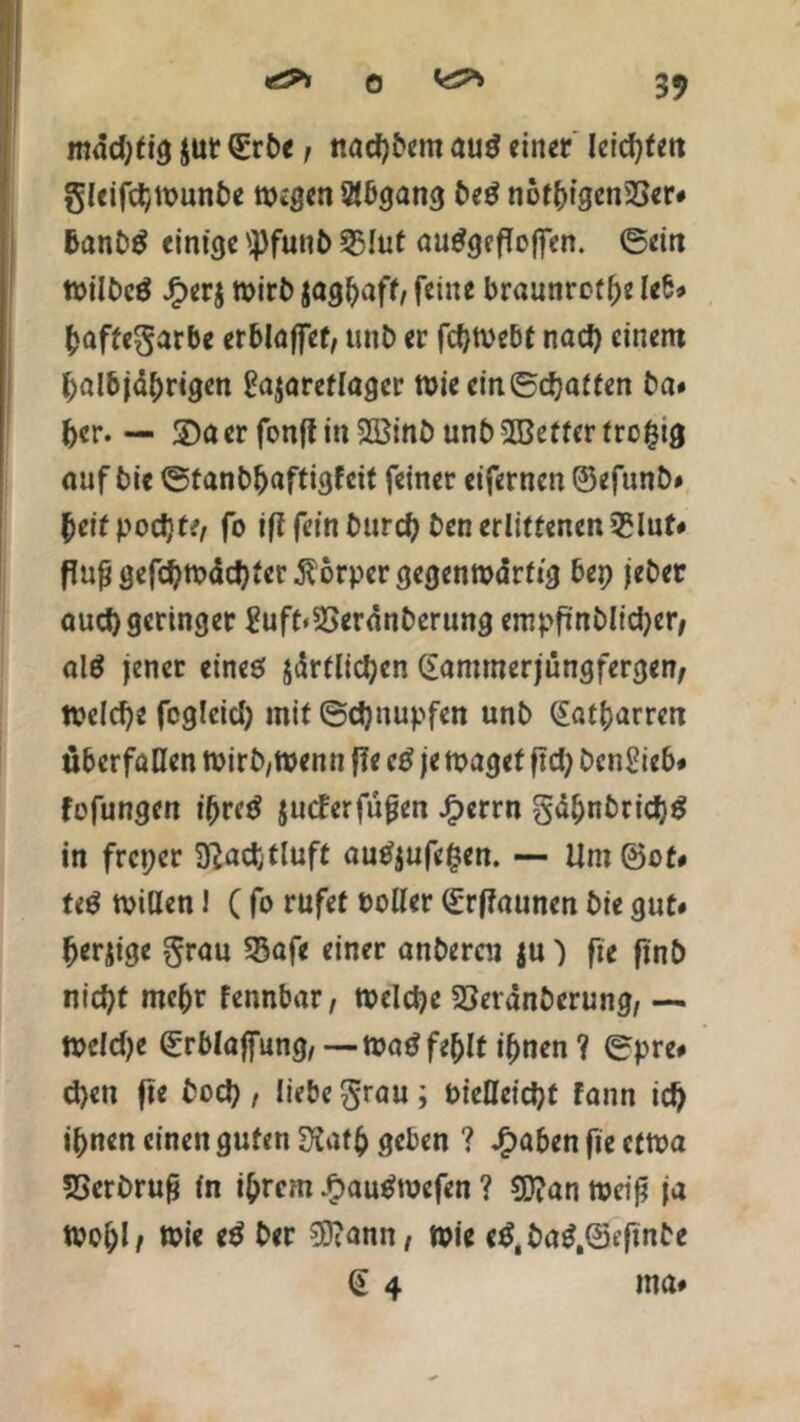 o 39
mächtig zur Erde, nachdem aus einer leichten
Fleischwunde wegen Abgang des nöthigen Ver-
bands einige Pfund Blut ausgeflossen. Sein
wildes Herz wird zaghaft, seine braunrothe leb-
haftefarbe erblasset, und er schwebt nach einem
halbjährigen Lazaretlager wie ein Schatten da-
her. — Da er sonst in Wind und Wetter trotzig
auf die Standhaftigkeit seiner eisernen Gesund-
heit pochte, so ist sein durch den erlittenen Blut-
fluß geschwächter Körper gegenwärtig bey jeder
auch geringer Luft-Veränderung empfindlicher,
als jener eines zärtlichen Cammerjüngfergen,
welche sogleich mit Schnupfen und Catharren
überfallen wird, wenn sie es je waget sich den Lieb-
kosungen ihres zuckersüßen Herrn Fähndrichs
in freyer Nachtluft auszusetzen. — Um Got-
tes willen! ( so rufet voller Erstaunen die gut-
herzige Frau Base einer anderen zu ) sie sind
nicht mehr kennbar, welche Veränderung, —
welche Erblassung, — was fehlt ihnen? Spre-
chen sie doch, liebe Frau; vielleicht kann ich
ihnen einen guten Rath geben? Haben sie etwa
Verdruß in ihrem Hauswesen? Man weiß ja
wohl, wie es der Mann, wie es das Gesinde
C 4 ma-